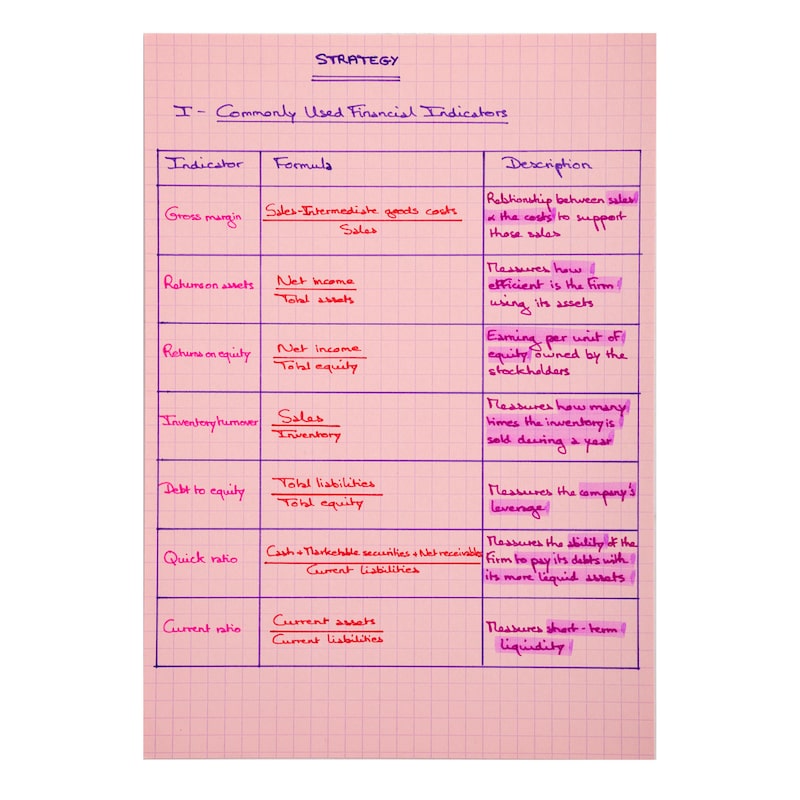 STRATEGY
I - Commonly Used Financial Indicators
Indicator Formula Description
Gross margin
Sales-Intermediate goods costs
Sales
Relationship between sales
& the costs to support
those sales
Returns on assets
Net income
Total assets
Measures how
efficient is the Firm
using its assets
Returns on equity
Net income
Total equity
Earning per unit of
equity owned by the
stockholders
Inventory turnover
Sales
Inventory
Measures how many
times the inventory is
sold during a year
Debt to equity
Total liabilities
Total equity
Measures the company's
leverage
Quick ratio
Cash + Marketable securities + Net receivables
Current liabilities
Measures the ability of the
Firm to pay its debts with
its more liquid assets
Current ratio
Current assets
Current liabilities
Measures short-term
liquidity